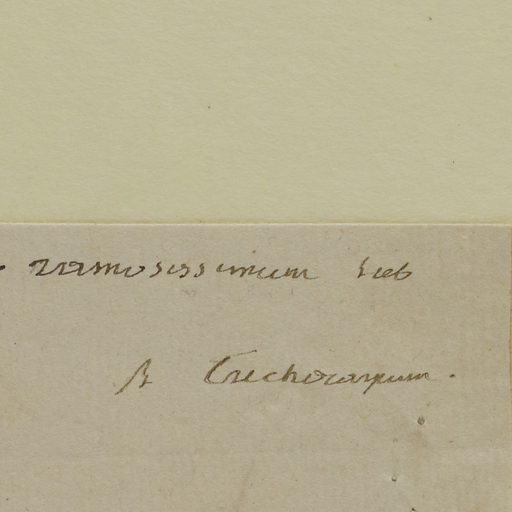 ramosissimum
β Trichocarpum.